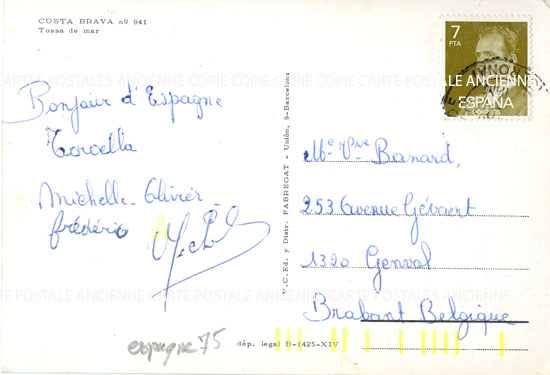 COSTA BRAVA nº 941
Tossa de mar
7
PTA
ESPAÑA
CARTE POSTALES ANCIENNE COPIE COPIE CARTE POSTALE ANCIENNE
Bonjour d'Espagne
Torcella
Michelle - Olivier -
frédéric
Me - Vve Bernard,
253 Avenue Gévaert
1320 Genval
Brabant Belgique
U.C.Ed. y Distr. FABREGAT - Unión, 9-Barcelona
CARTE POSTALE ANCIENNE
espagne 75
dép. legal B-1425-XIV